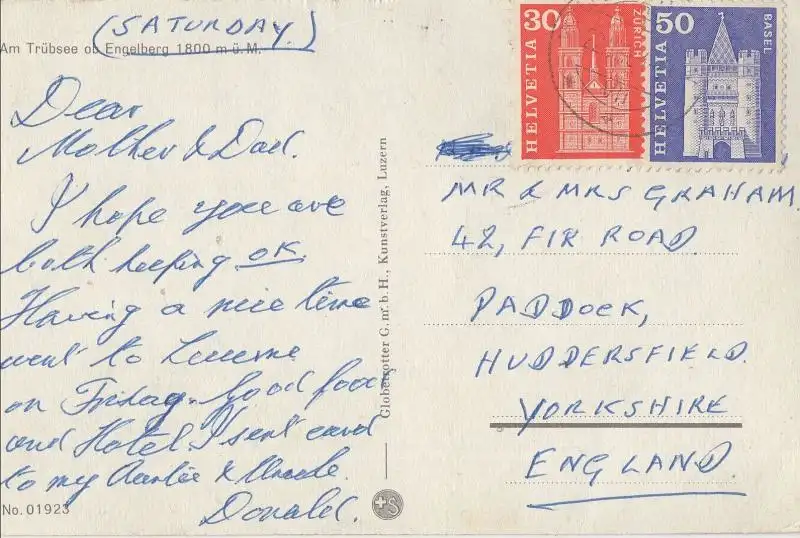 (SATURDAY.)
Am Trübsee ob Engelberg 1800 m ü. M.
Dear
Mother & Dad.
I hope you are
both keeping OK.
Having a nice time
went to Lucerne
on Friday. Good food
and Hotel. I sent card
to my Auntie & Uncle.
Donald.
No. 01923
Globetrotter G. m. b. H., Kunstverlag, Luzern
30
ZÜRICH
HELVETIA
50
BASEL
HELVETIA
MR & MRS GRAHAM.
42, FIR ROAD
PADDOCK,
HUDDERSFIELD.
YORKSHIRE
ENGLAND.